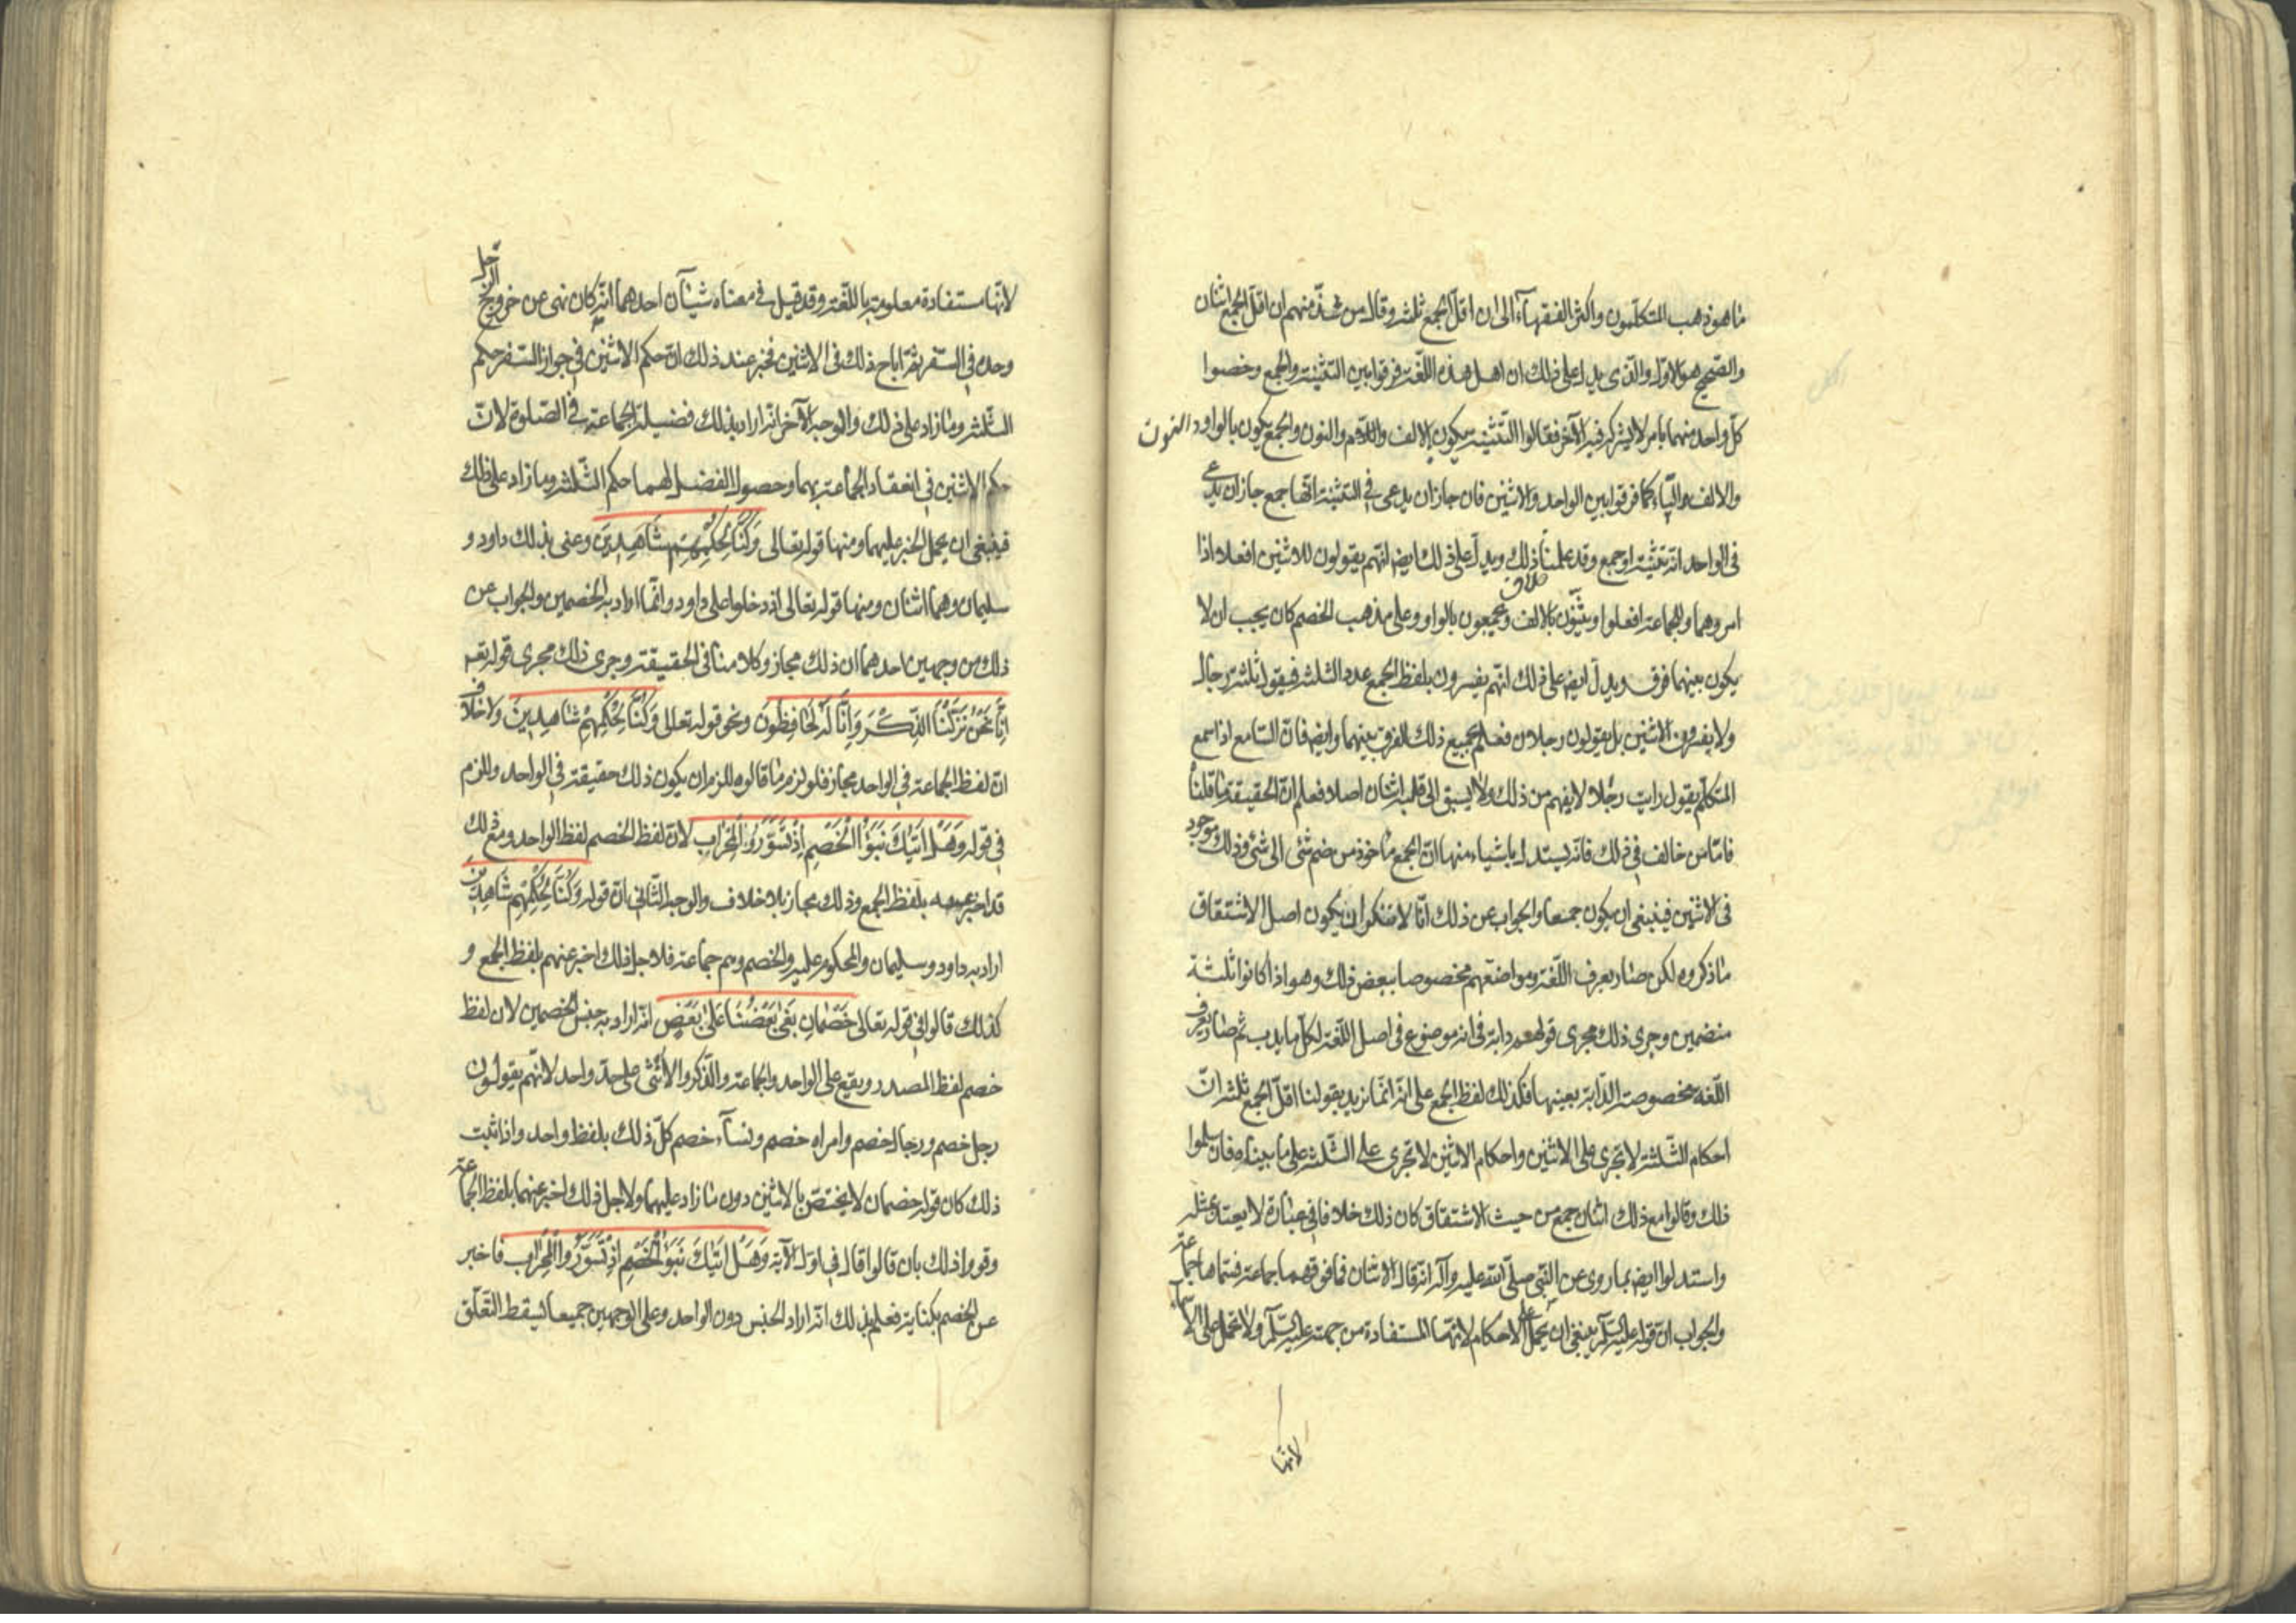 ما هو ذهب المتكلّمون واكثر الفقهآء الى ان اقلّ الجمع ثلثة وقال من شذّ منهم ان اقلّ الجمع اثنان
والصّحيح هو الاوّل والّذى يدل على ذلك ان اهل هذه اللّغة فرقوا بين التثنية والجمع وخصوا
كلّ واحد منهما بامر لا يشركه فيه الآخر فقالوا التّثنية يكون بالالف واللام والنون والجمع يكون بالواو والنون
والالف والتّاء كما فرقوا بين الواحد والاثنين فان جاز ان يدعى فى التثنية انّها جمع جاز ان يدعى
فى الواحد انّه تثنية او جمع وقد علمنا خلاف ذلك ويدلّ على ذلك ايضا انّهم يقولون للاثنين افعلا اذا
امروهما وللجماعة افعلوا ويثنّون بالالف ويجمعون بالواو وعلى مذهب الخصم كان يجب ان لا
يكون بينهما فرق ويدلّ ايضا على ذلك انّهم يفسرون بلفظ الجمع عدد الثلثة فيقول ثلثة رجال
ولا يفسرون الاثنين بل يقولون رجلان فعلم بجميع ذلك الفرق بينهما وايضا فانّ السّامع اذا سمع
المتكلّم يقول رايت رجالا لا يفهم من ذلك ولا يسبق الى قلبه اثنان اصلا فعلم انّ الحقيقة ما قلنا
فامّا من خالف فى ذلك فانّه يستدل باشياء منها انّ الجمع ماخوذ من ضم شئ الى شئ وذلك موجود
فى الاثنين فينبغى ان يكون جمعا والجواب عن ذلك انّا لا ننكر ان يكون اصل الاشتقاق
ما ذكروه لكن صار بعرف اللّغة ومواضعتهم مخصوصا ببعض ذلك وهو اذا كانوا ثلثة
منضمين وجرى ذلك مجرى قولهم دابة فى انه موضوع فى اصل اللّغة لكلّ ما يدب ثم صار بعرف
اللّغة مخصوصة الدّابة بعينها فكذلك لفظ الجمع على انّه انّما نريد بقولنا اقلّ الجمع ثلثة انّ
احكام الثّلثة لا تجرى على الاثنين واحكام الاثنين لا تجرى على الثّلثة على ما بيناه فان سلموا
ذلك وقالوا مع ذلك اثنان جمع من حيث الاشتقاق كان ذلك خلافا فى عبارة لا يعتد بمثله
واستدلوا ايضا بما روى عن النّبى صلّى الله عليه وآله انّه قال الاثنان فما فوقهما جماعة فسماهما جماعة
والجواب انّ قوله عليه السّلام ينبغى ان يحمل على الاحكام لانّها المستفادة من جهته عليه السّلام ولا تحمل على الاسماء
لانّها
لانّها مستفادة معلومة باللّغة وقد قيل فى معناه شيئآن احدهما انّه كان نهى عن خروج الرّجل
وحده فى السّفر ثمّ اباح ذلك فى الاثنين فخبر عند ذلك انّ حكم الاثنين فى جواز السّفر حكم
الثّلثة وما زاد على ذلك والوجه الآخر انّه اراد بذلك فضيلة الجماعة فى الصّلوة لانّ
حكم الاثنين فى انعقاد الجماعة بهما وحصول الفضل لهما حكم الثّلثة وما زاد على ذلك
فينبغى ان يحمل الخبر عليهما ومنها قوله تعالى وَكُنَّا لِحُكْمِهِمْ شَاهِدِينَ وعنى بذلك داود و
سليمان وهما اثنان ومنها قوله تعالى اذ دخلوا على داود وانّما اراد به الخصمين والجواب عن
ذلك من وجهين احدهما ان ذلك مجاز وكلامنا فى الحقيقة وجرى ذلك مجرى قوله تعـ
اِنَّا نَحْنُ نَزَّلْنَا الذِّكْرَ وَاِنَّا لَهُ لَحَافِظُونَ ونحو قوله تعالى وَكُنَّا لِحُكْمِهِمْ شَاهِدِينَ ولا خلاف
انّ لفظ الجماعة فى الواحد مجاز فلو لزم ما قالوه للزم ان يكون ذلك حقيقة فى الواحد وللزم
فى قوله وَهَلْ اَتَيكَ نَبَؤُا الْخَصْمِ اِذْ تَسَوَّرُوا الْمِحْرَابَ لانّ لفظ الخصم لفظ الواحد ومع ذلك
قد اخبر عنه بلفظ الجمع وذلك مجاز بلا خلاف والوجه الثّانى انّ قوله وَكُنَّا لِحُكْمِهِمْ شَاهِدِينَ
اراد به داود وسليمان والمحكوم عليه والخصم وهم جماعة فلاجل ذلك اخبر عنهم بلفظ الجمع و
كذلك قالوا فى قوله تعالى خَصْمَانِ بَغَى بَعْضُنَا عَلَى بَعْضٍ انّه اراد به جنس الخصمين لان لفظ
خصم لفظ المصدر ويقع على الواحد والجماعة والذّكر والانثى على حدّ واحد لانّهم يقولون
رجل خصم ورجال خصم وامراه خصم ونسآء خصم كلّ ذلك بلفظ واحد واذا ثبت
ذلك كان قوله خصمان لا يختصّ بالاثنين دون ما زاد عليهما ولاجل ذلك اخبر عنهما بلفظ الجماعة
وقووا ذلك بان قالوا قال فى اوّل الآية وَهَلْ اَتَيكَ نَبَؤُا الْخَصْمِ اِذْ تَسَوَّرُوا الْمِحْرَابَ فاخبر
عن الخصم بكناية فعلم بذلك انّه اراد الجنس دون الواحد وعلى الوجهين جميعا يسقط التّعلّق